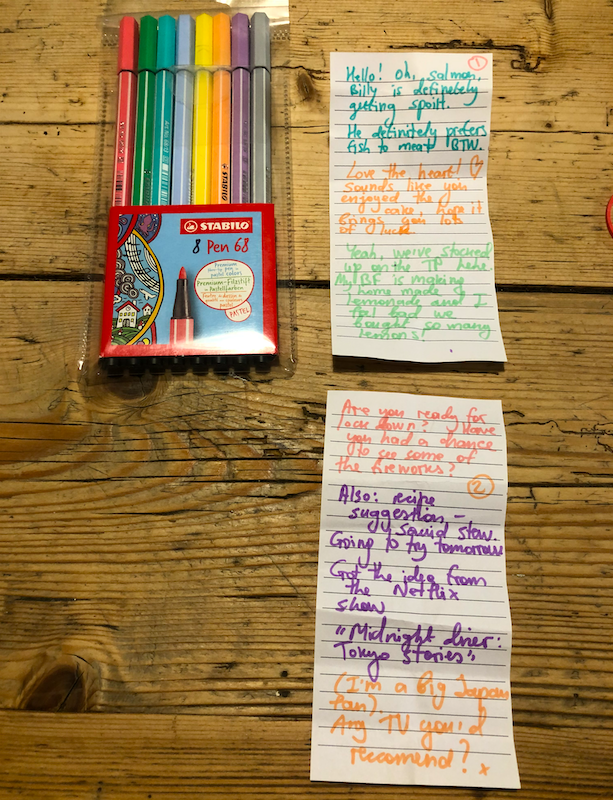 STABILO
8 Pen 68
Premium
pastel colors
Premium-Filzstift
in Pastellfarben
pastel
PASTEL
1
Hello! Oh, salmon,
Billy is definetely
getting spoilt.
He definitely prefers
fish to meat BTW.
Love the heart! ♡
Sounds like you
enjoyed the
cake, hope it
brings you lots
of luck
Yeah, we've stocked
up on the TP here
My BF is making
home made
lemonade and I
feel bad we
bought so many
lemons!
Are you ready for
lockdown? Have
you had a chance
to see some of
the fireworks?
2
Also: recipe
suggestion –
squid stew.
Going to try tomorrow
Got the idea from
the Netflix
show
"Midnight diner:
Tokyo Stories"
(I'm a Big Japan
fan).
Any TV you'd
recomend? x